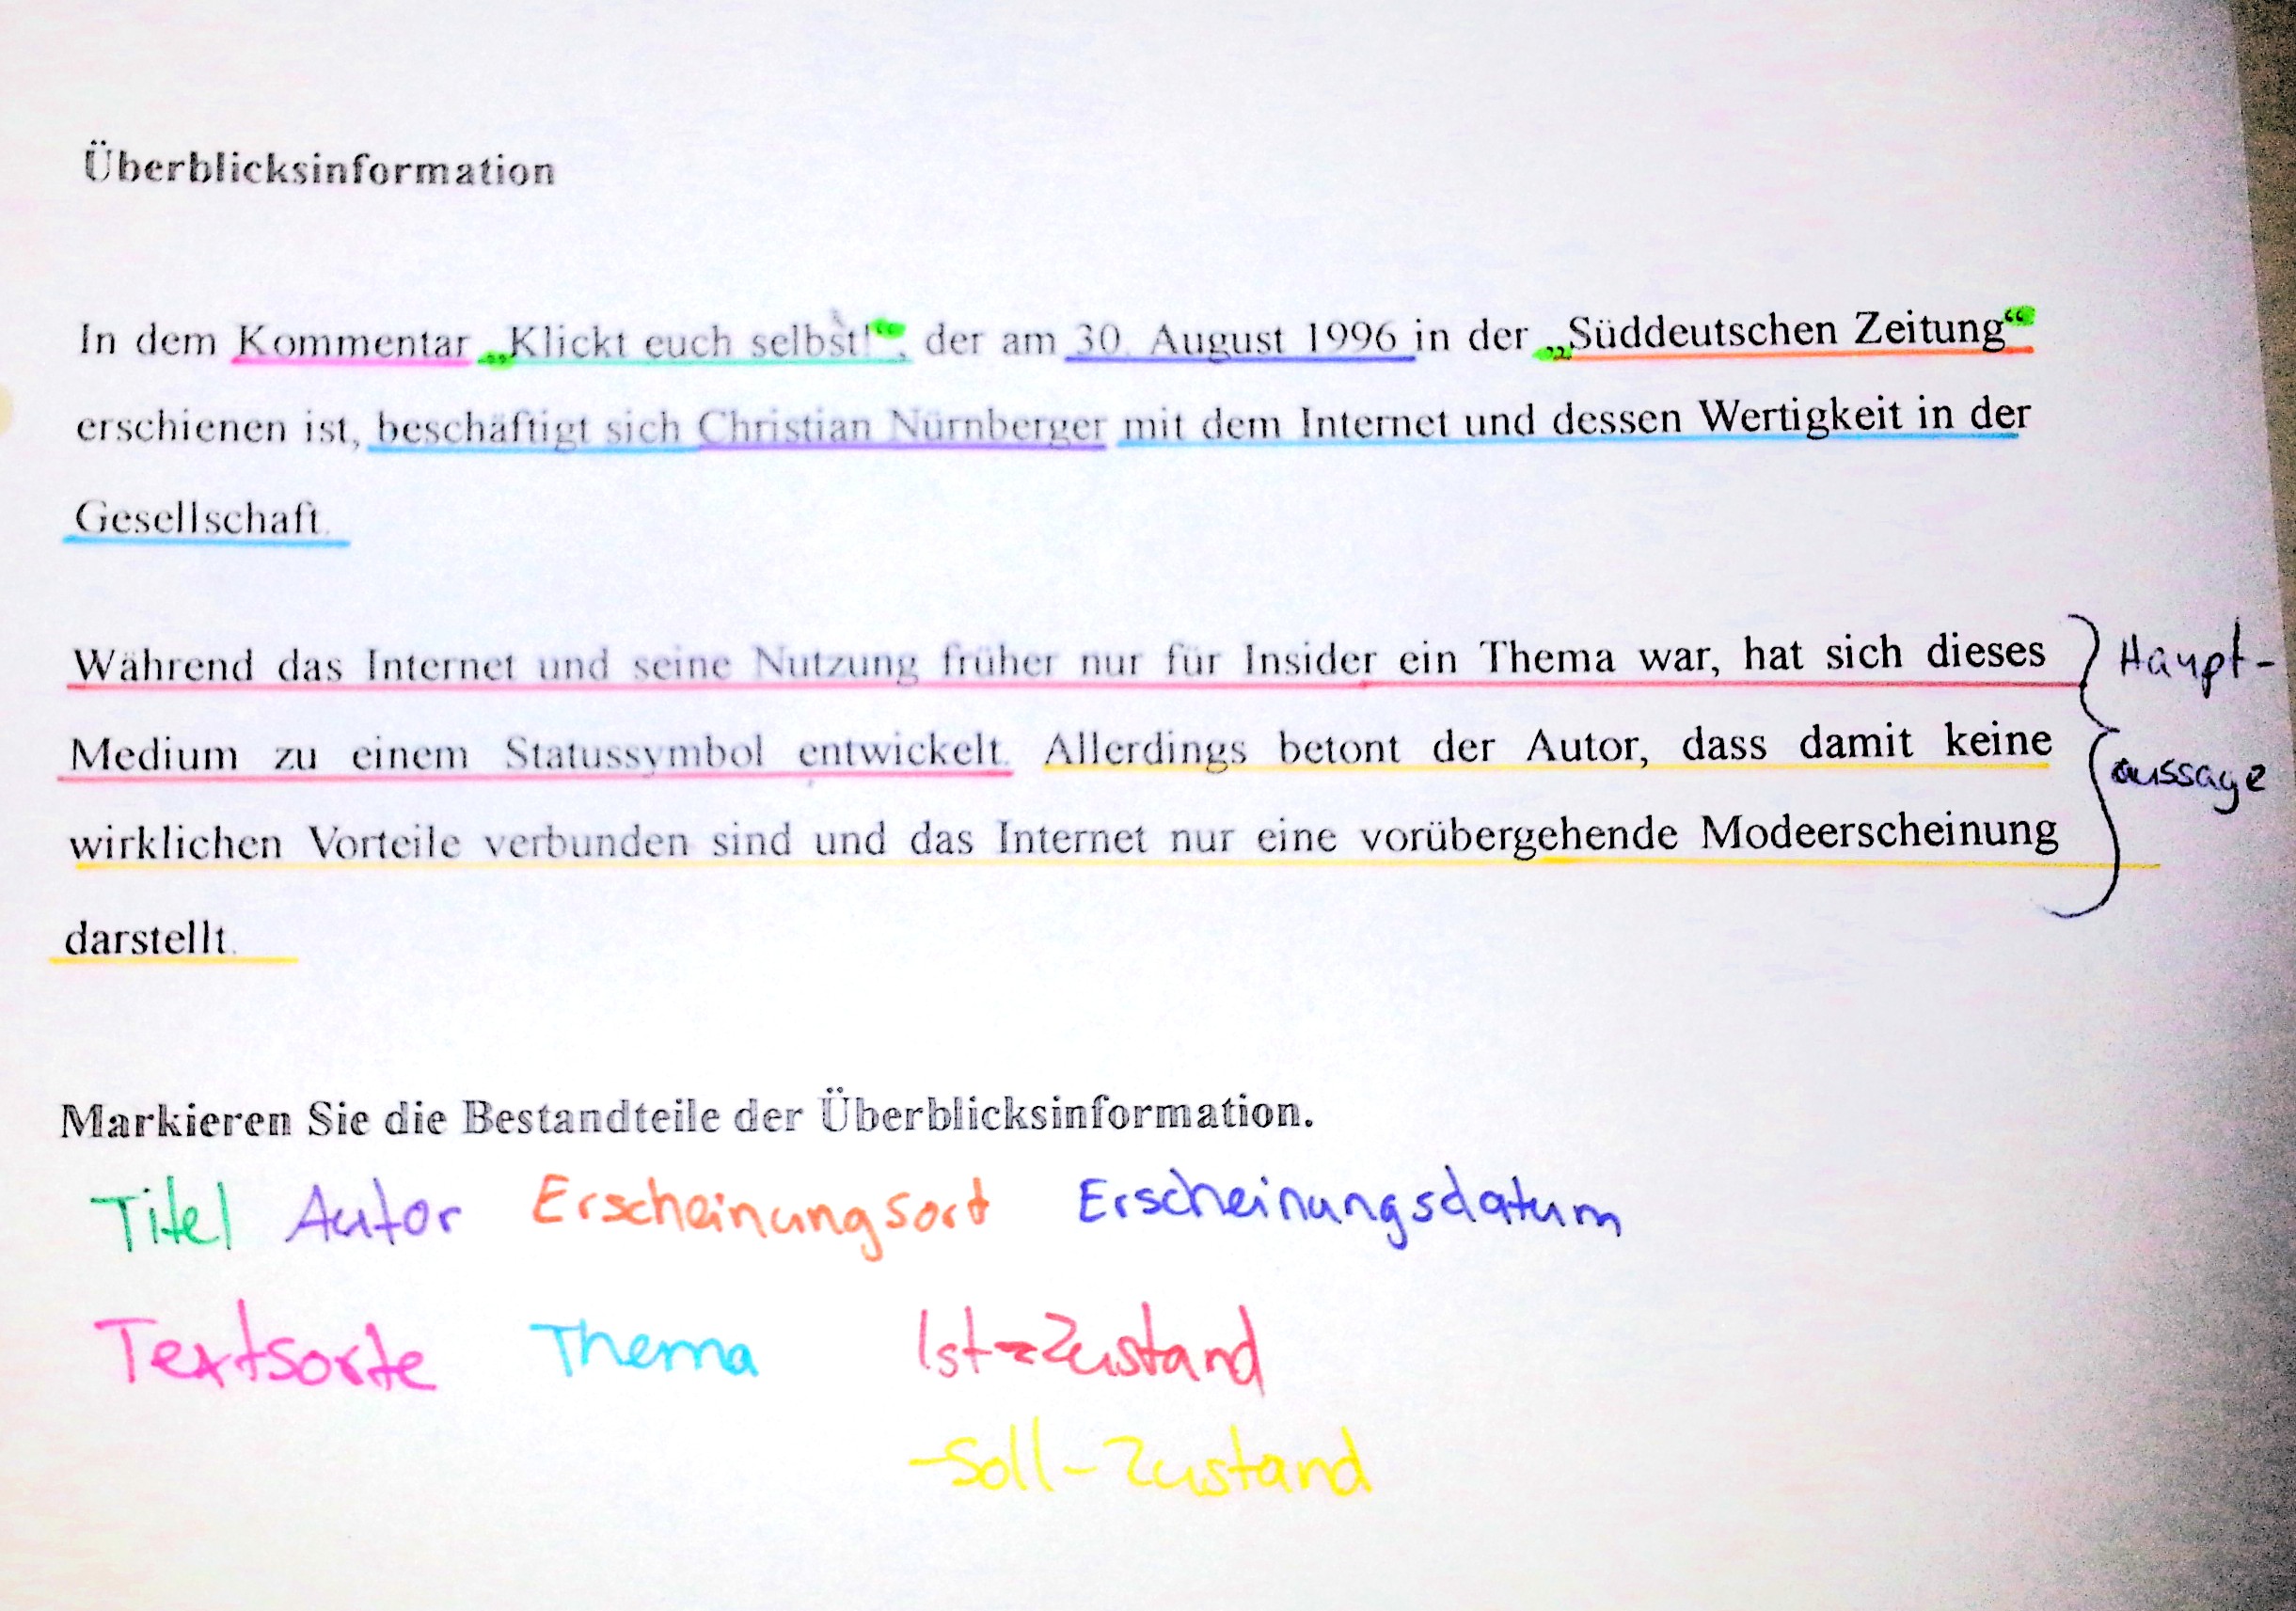 Überblicksinformation
In dem Kommentar „Klickt euch selbst!“, der am 30. August 1996 in der „Süddeutschen Zeitung“
erschienen ist, beschäftigt sich Christian Nürnberger mit dem Internet und dessen Wertigkeit in der
Gesellschaft.
Während das Internet und seine Nutzung früher nur für Insider ein Thema war, hat sich dieses
Medium zu einem Statussymbol entwickelt. Allerdings betont der Autor, dass damit keine
wirklichen Vorteile verbunden sind und das Internet nur eine vorübergehende Modeerscheinung
darstellt.
Haupt-
aussage
Markieren Sie die Bestandteile der Überblicksinformation.
Titel Autor Erscheinungsort Erscheinungsdatum
Textsorte Thema Ist-Zustand
-Soll-Zustand